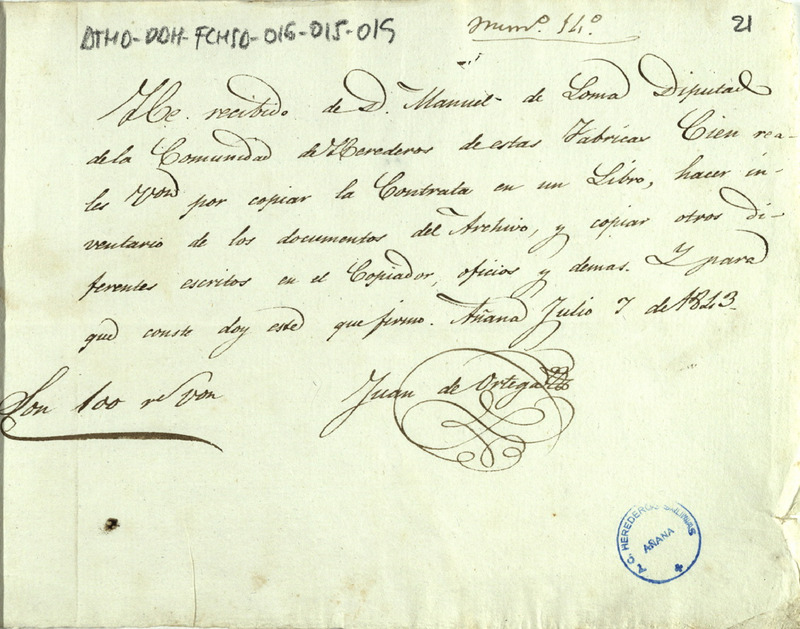 DTHD-DDH-FCHSD-016-015-019
Numº. 14º.
21
He recibido de D. Manuel de Loma Diputad
de la Comunidad de Herederos de estas Fabricas Cien rea-
les Von por copiar la Contrata en un Libro, hacer in-
ventario de los documentos del Archivo, y copiar otros di-
ferentes escritos en el Copiador, oficios y demas. Y para
que conste doy este que firmo. Añana Julio 7 de 1843
Juan de Ortega
Son 100 rs von
A. C. HEREDEROS SALINAS
AÑANA